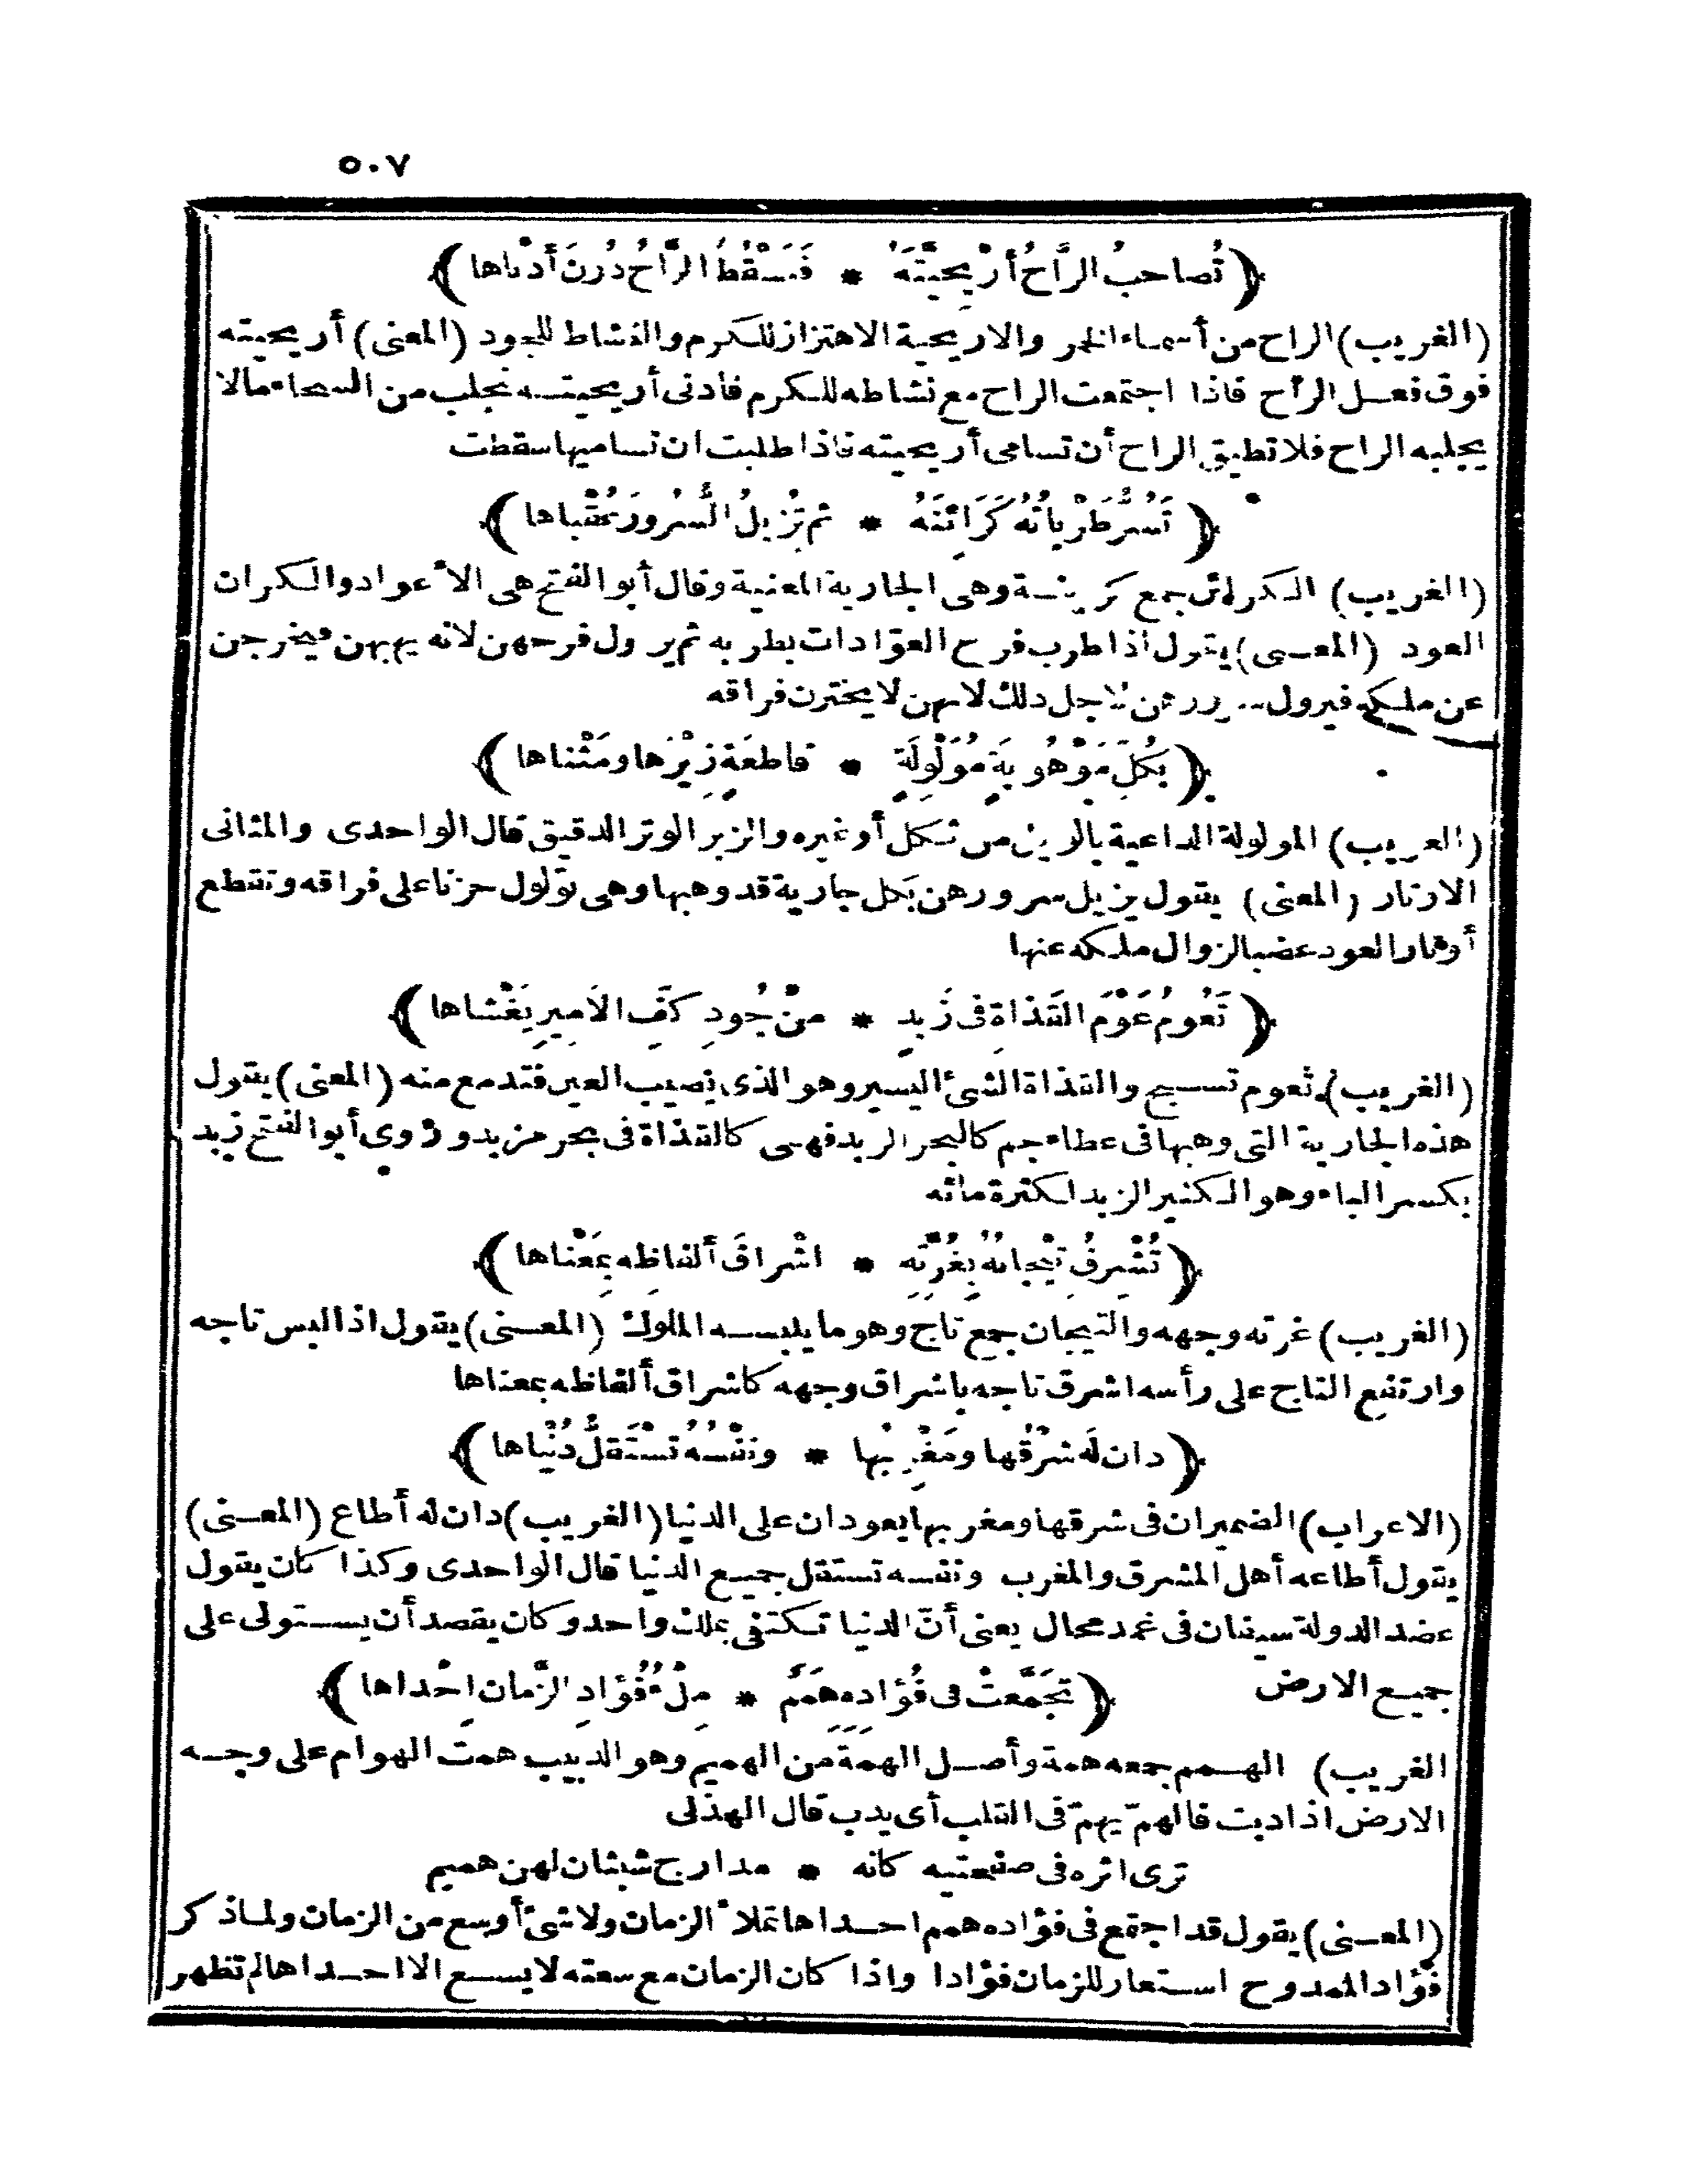 ٥٠٧
(تُصاحبُ الرَّاحُ أرْيحِيَّتَهُ * فَتَسْقُطُ الرَّاحُ دُونَ أدْناها)
(الغريب) الراح من أسماء الخمر والاريحية الاهتزاز للكرم والنشاط للجود (المعنى) أريحيته
فوق فعل الراح فاذا اجتمعت الراح مع نشاطه للكرم فأدنى أريحيته تجلب من السخاء مالا
يجلبه الراح فلا تطيق الراح أن تسامى أريحيته فاذا طلبت ان تساميها سقطت
(تَسُرُّ طَرْباتُهُ كَرائِنَهُ * ثم تُزيلُ السُّرورَ عُقْباها)
(الغريب) الكرائن جمع كرينة وهى الجارية المغنية وقال أبو الفتح هى الاعواد والكران
العود (المعنى) يقول اذا طرب فرح العوّادات بطربه ثم يزول فرحهن لانه يهبهن فيخرجن
عن ملكه فيزول سرورهن لاجل ذلك لانهن لا يخترن فراقه
(بكُلّ مَوْهُوبَةٍ مُوَلْوِلَةٍ * قاطعَةٍ زِيْرَها ومَثْناها)
(الغريب) المولولة الداعية بالويل من ثكل أو غيره والزير الوتر الدقيق قال الواحدى والمثانى
الاوتار (المعنى) يقول يزيل سرورهن بكل جارية قد وهبها وهى تولول حزنا على فراقه وتقطع
أوتار العود غضبا لزوال ملكه عنها
(تَعُومُ عَوْمَ القَذاةِ فى زَبدٍ * منْ جُودِ كَفِّ الاَميرِ يَغْشاها)
(الغريب) تعوم تسبح والقذاة الشئ اليسير وهو الذى يصيب العين فتدمع منه (المعنى) يقول
هذه الجارية التى وهبها فى عطاء جم كالبحر الزبد فهى كالقذاة فى بحر مزبد وروى أبو الفتح زبد
بكسر الباء وهو الكثير الزبد لكثرة مائه
(تُشْرِقُ تيْجانُهُ بِغُرَّتِه * اشْراقَ ألفاظِه بِمَعْناها)
(الغريب) غرته وجهه والتيجان جمع تاج وهو ما يلبسه الملوك (المعنى) يقول اذا لبس تاجه
وارتفع التاج على رأسه اشرق تاجه باشراق وجهه كاشراق ألفاظه بمعناها
(دان لَه شرْقُها ومَغْرِبُها * ونفْسُهُ تسْتَقلُّ دُنْياها)
(الاعراب) الضميران فى شرقها ومغربها يعودان على الدنيا (الغريب) دان له أطاع (المعنى)
يقول أطاعه أهل المشرق والمغرب ونفسه تستقل جميع الدنيا قال الواحدى وكذا كان يقول
عضد الدولة سيفان فى غمد محال يعنى أنّ الدنيا تكتفى بملك واحد وكان يقصد أن يستولى على
جميع الارض (تَجَمَّعتْ فى فُؤادِه هِمَمٌ * مِلْءُ فُؤادِ الزَّمان احْداها)
الغريب) الهمم جمعه همة وأصل الهمة من الهميم وهو الدبيب همت الهوام على وجه
الارض اذا دبت فالهمّ يهمّ فى القلب أى يدب قال الهذلى
ترى اثره فى صفحتيه كانه * مدارج شبثان لهن هميم
(المعنى) يقول قد اجتمع فى فؤاده همم احداها تملأ الزمان ولا شئ أوسع من الزمان ولما ذكر
فؤاد الممدوح استعار للزمان فؤادا واذا كان الزمان مع سعته لا يسع الا احداها لم تظهر